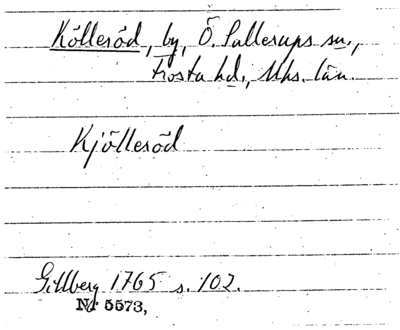 Kölleröd, by, Ö. Sallerups sn.,
Frosta hd., Mhs. län.
Kjölleröd
Gillberg 1765 s. 102.
Nr 5573,